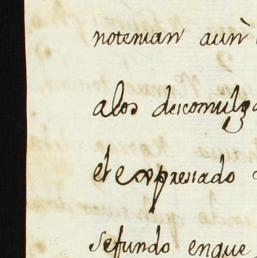 notenian aun
alos descomulga
el expresado
sefundo enque